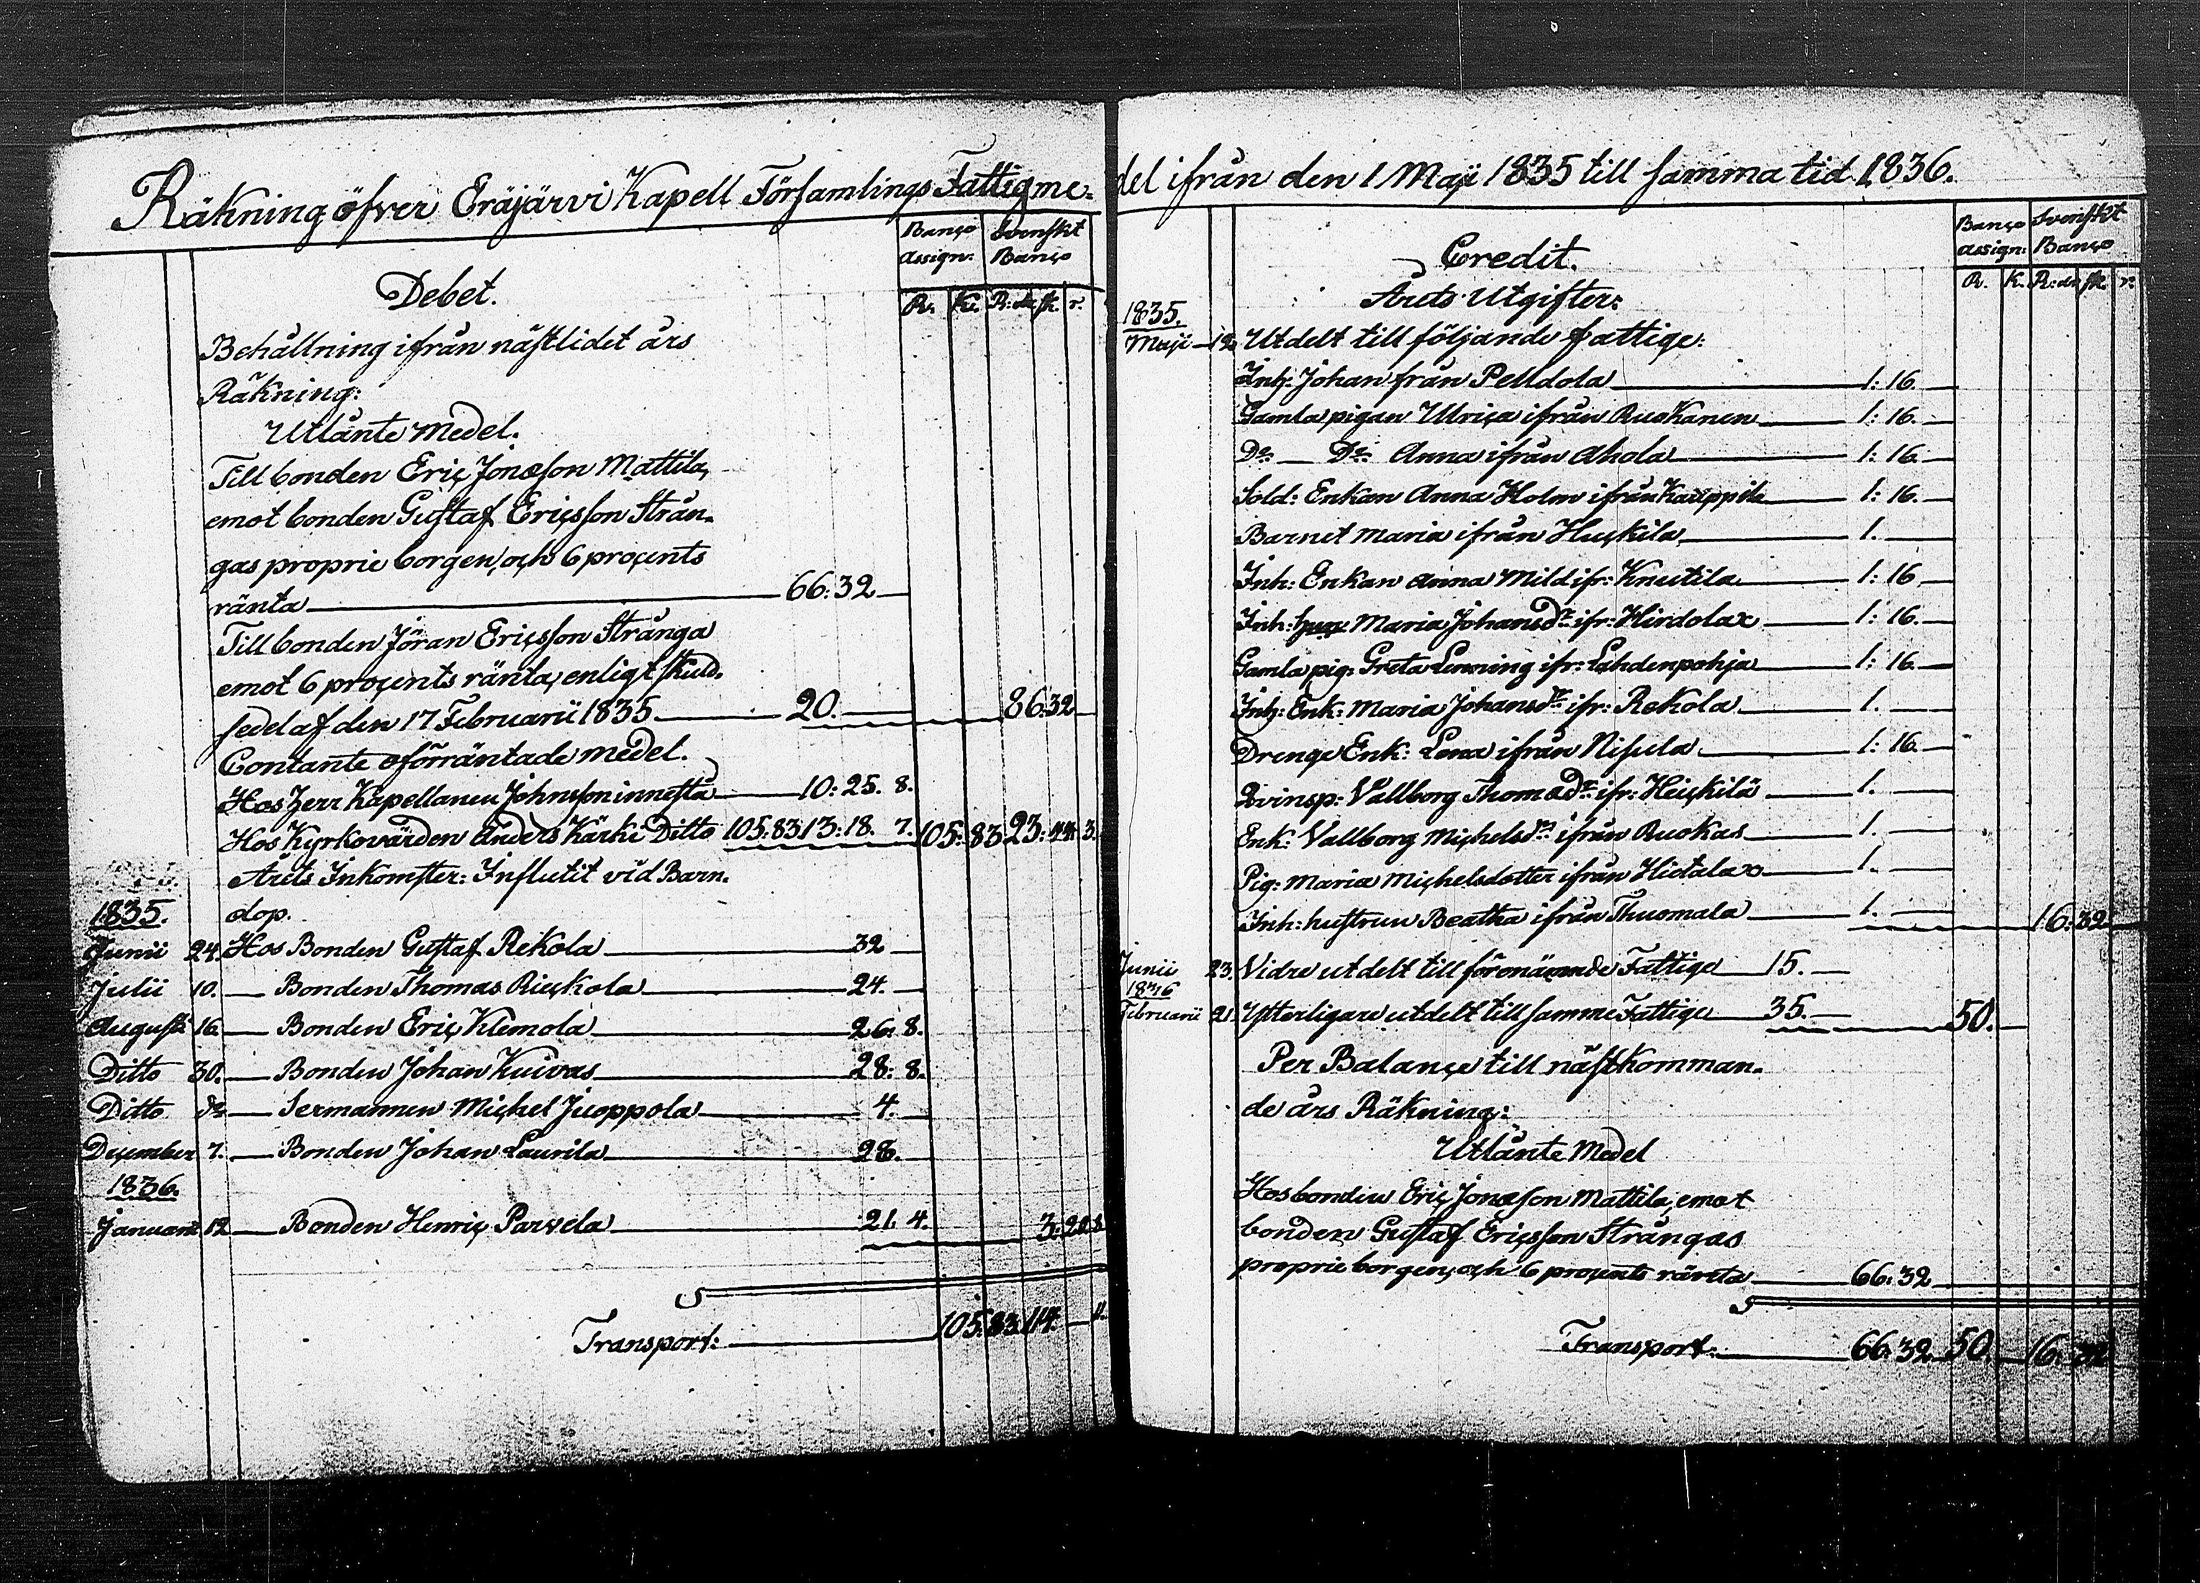 Räkning öfver Eräjärvi Kapell Församlings Fattigme-
Banco Svenskt
assign: Banco
Debet.
R. K. R:dr sk. r.
Behållning ifrån nästlidet års
Räkning:
Utlånte Medel.
Till bonden Eric Jonæsson Mattila,
emot bonden Gustaf Ericsson Strån-
gas proprie borgen, och 6 procents
ränta 66:32
Till bonden Jöran Ericsson Strånga
emot 6 procents ränta, enligt skuld-
sedel af den 17 Februarii 1835 20. 86:32
Contante oförräntade medel.
Hos Herr Kapellanen Johnsson innestå 10:25. 8.
Hos Kyrkovärden Anders Kärki Ditto 105:83 13:18. 7. 105:83 23:44. 3.
Årets Inkomster: Influtit vid Barn-
1835. dop.
Junii 24. Hos Bonden Gustaf Rekola 32
Julii 10. Bonden Thomas Rickola 24.
Augusti 16. Bonden Eric Klemola 26. 8.
Ditto 30. Bonden Johan Kuivas 28: 8.
Ditto do Sexmannen Michel Juoppola 4.
December 7. Bonden Johan Laurila 28.
1836.
Januarii 12 Bonden Henric Parvela 21. 4. 3:20.8
Transport: 105:83. 114. 11.
del ifrån den 1 Maji 1835 till samma tid 1836.
Banco Svenskt
assign: Banco
Credit.
R. K. R:dr sk. r.
Årets Utgifter:
1835.
Maji 12 Utdelt till följande fattige:
Inh: Johan från Pelldola 1:16.
Gamla pigan Ulrica ifrån Ruokanen 1:16.
Do Do Anna ifrån Ahola 1:16.
Sold: Enkan Anna Holm ifrån Kauppila 1:16.
Barnet Maria ifrån Huckila 1.
Inh: Enkan Anna Mild ifr: Knutila 1:16
Inh: Maria Johansdr ifr: Hirdola 1:16.
Gamla pig: Greta Lenning ifr: Lahdenpohja 1:16.
Inh: Enk: Maria Johansdr ifr: Rekola 1.
Drenge Enk: Lena ifrån Nisula 1:16.
Qvinsp: Vallborg Thomædr ifr: Heickilä 1.
Enk: Vallborg Michelsdr ifrån Ruokas 1.
Pig: Maria Michelsdotter ifrån Hietala 1.
Inh: hustrun Beatha ifrån Thuomala 1. 16:32
Junii 23. Vidre utdelt till förenämnde Fattige 15.
1836
Februarii 21. Ytterligare utdelt till samme Fattige 35. 50.
Per Balance till nästkomman-
de års Räkning:
Utlånte Medel
Hos bonden Eric Jonæsson Mattila, emot
bonden Gustaf Ericsson Strångas
proprie borgen, och 6 procents ränta 66:32
Transport: 66:32 50. 16:32